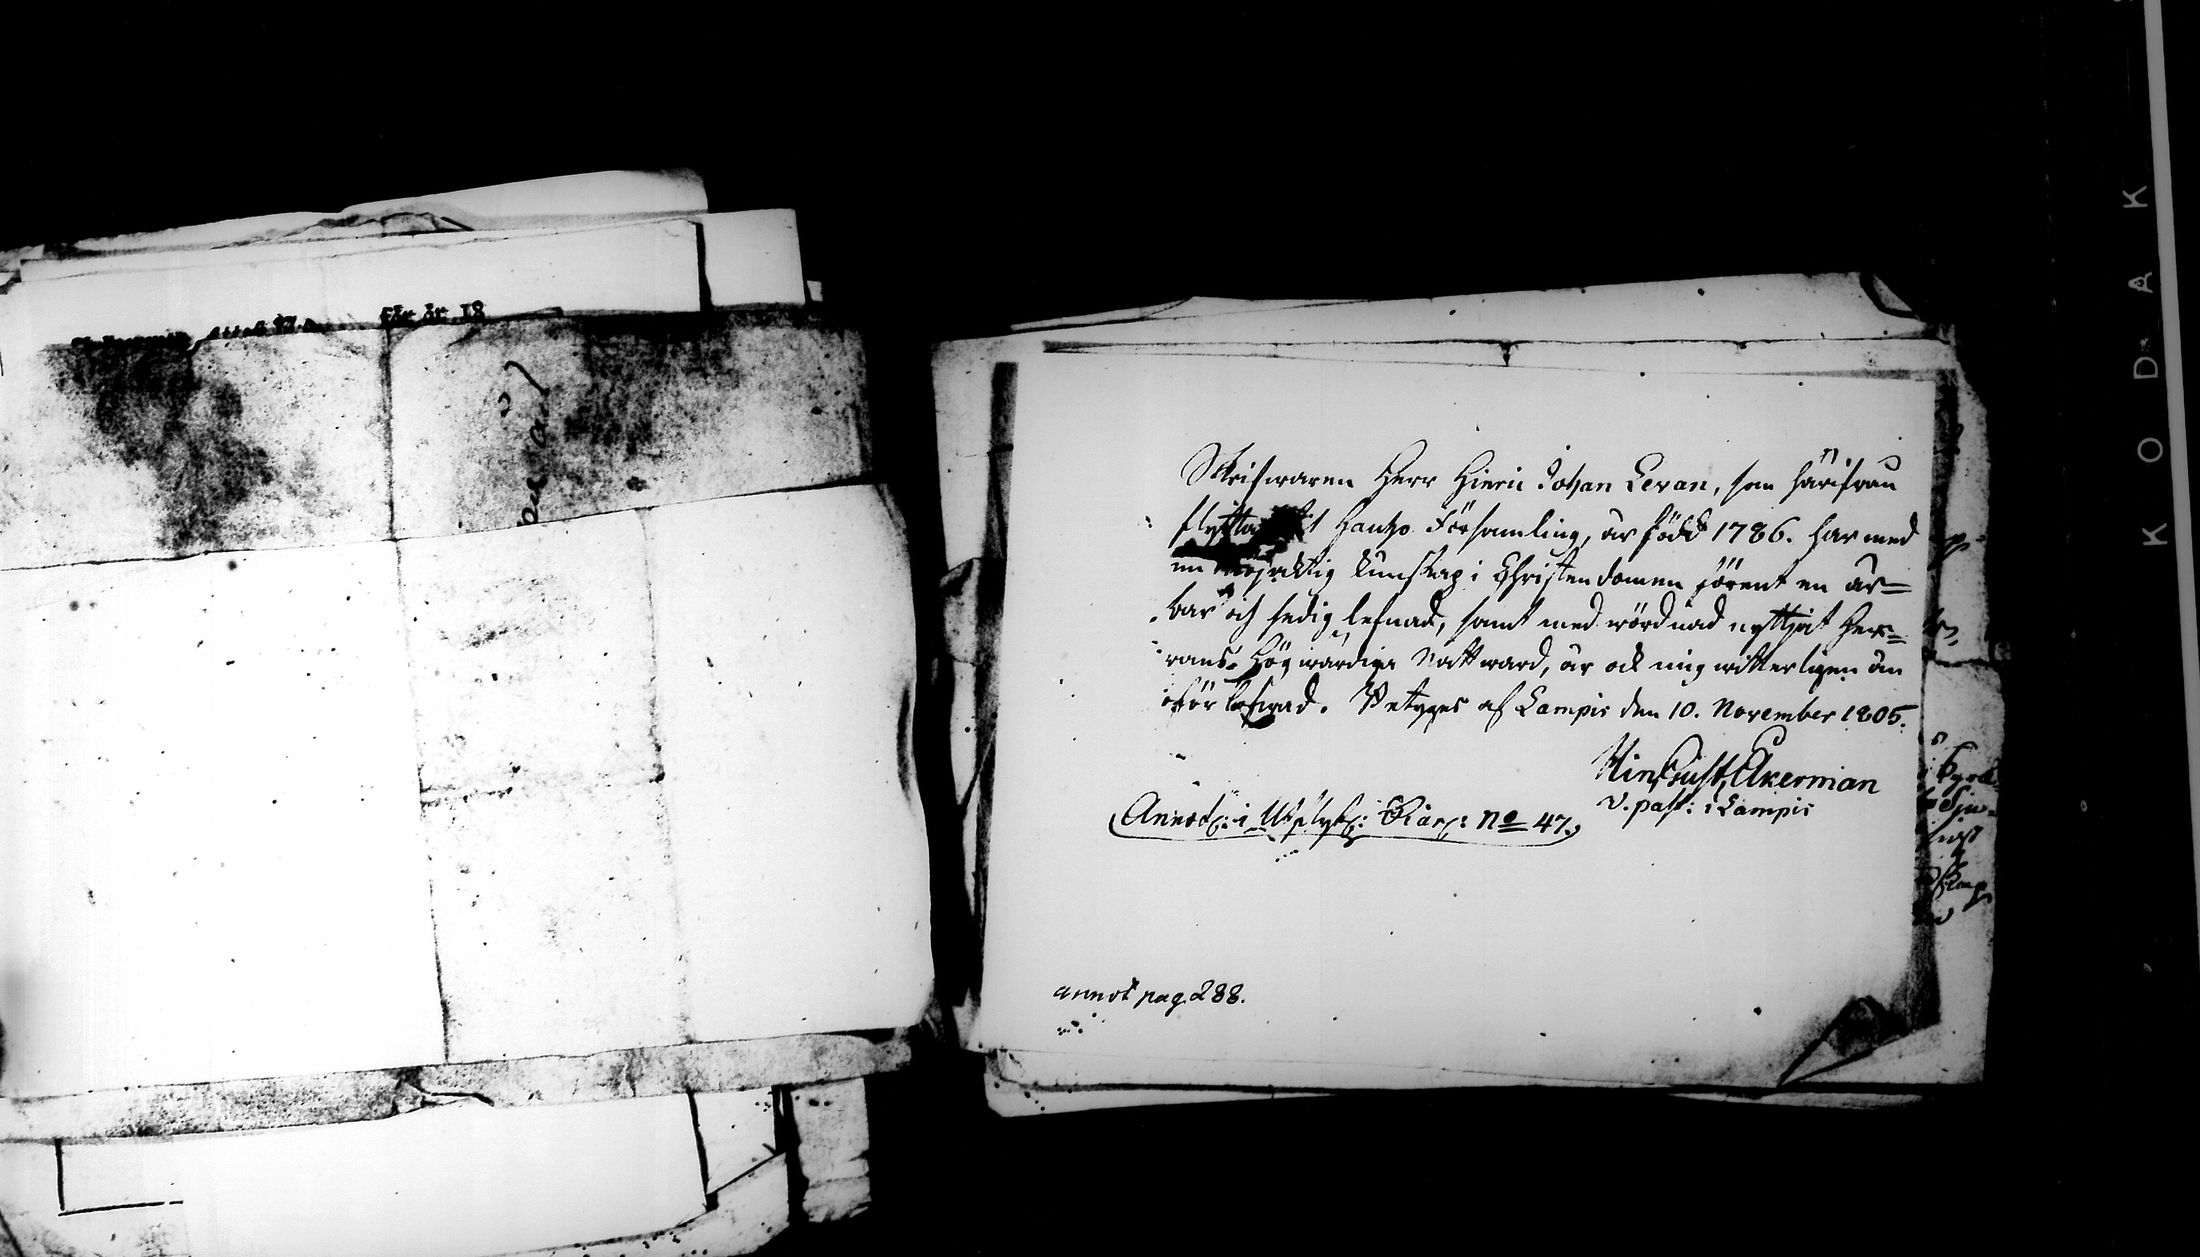 för år 18
Skrifwaren Herr Hinric Johan Levan, som härifrån
flytta t Hauho Församling, är född 1786. har med
en kunskap i Christendomen förent en är=
bar och sedig lefnad, samt med wördnad nyttjat Her=
rans Högwärdiga Nattward, är ock mig witterligen än
oförlofwad. Betygas af Lampis den 10. November 1805.
Akerman
v. past: i Lampis
Annot: i Utflytt: No 47.
annot pag. 288.
KODAK